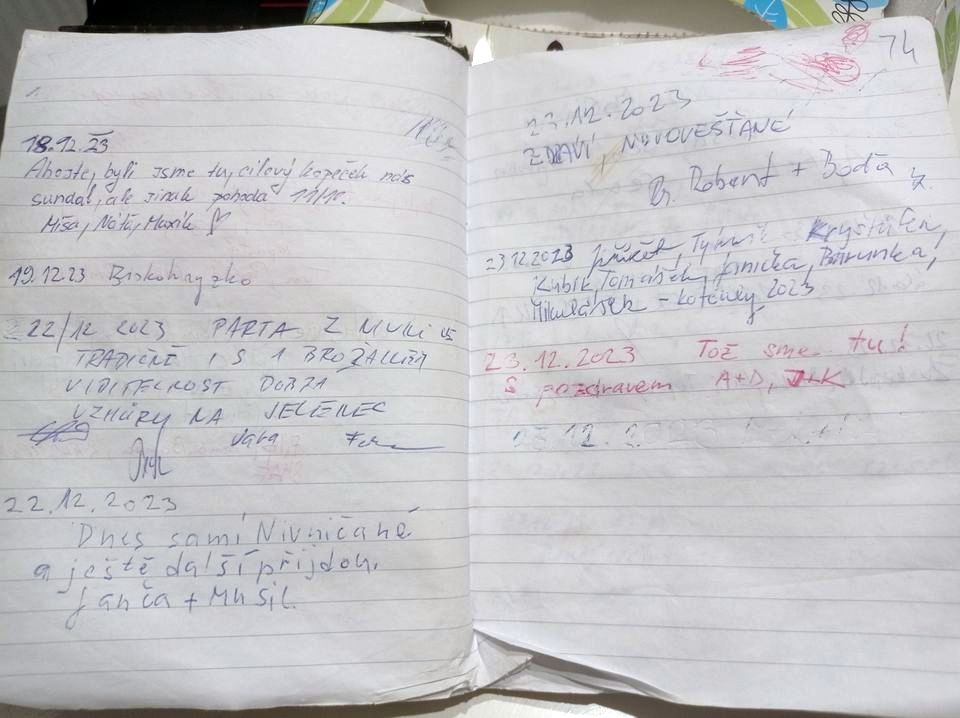 18.12.23
Ahojte, byli jsme tu, cílový kopeček nás
sundal, ale jinak pohoda 11/10.
Míša, Nátá, Maxík
19.12.23
22/12 2023 PARTA Z
TRADIČNĚ I S 1
VIDITELNOST DOBRÁ
VZHŮRU NA JELENEC
22.12.2023
Dnes samí Nivničané
a ještě další přijdou.
Janča + Musil.
74
23.12.2023
ZDRAVÍ NOVOVEŠŤANÉ
Robert + Boďa
23.12.2023
Kubík, Tomášek, Janička, Barunka,
Mikulášek - kotouley 2023
23.12.2023 Tož sme tu!
S pozdravem A+D, J+K
12.2023